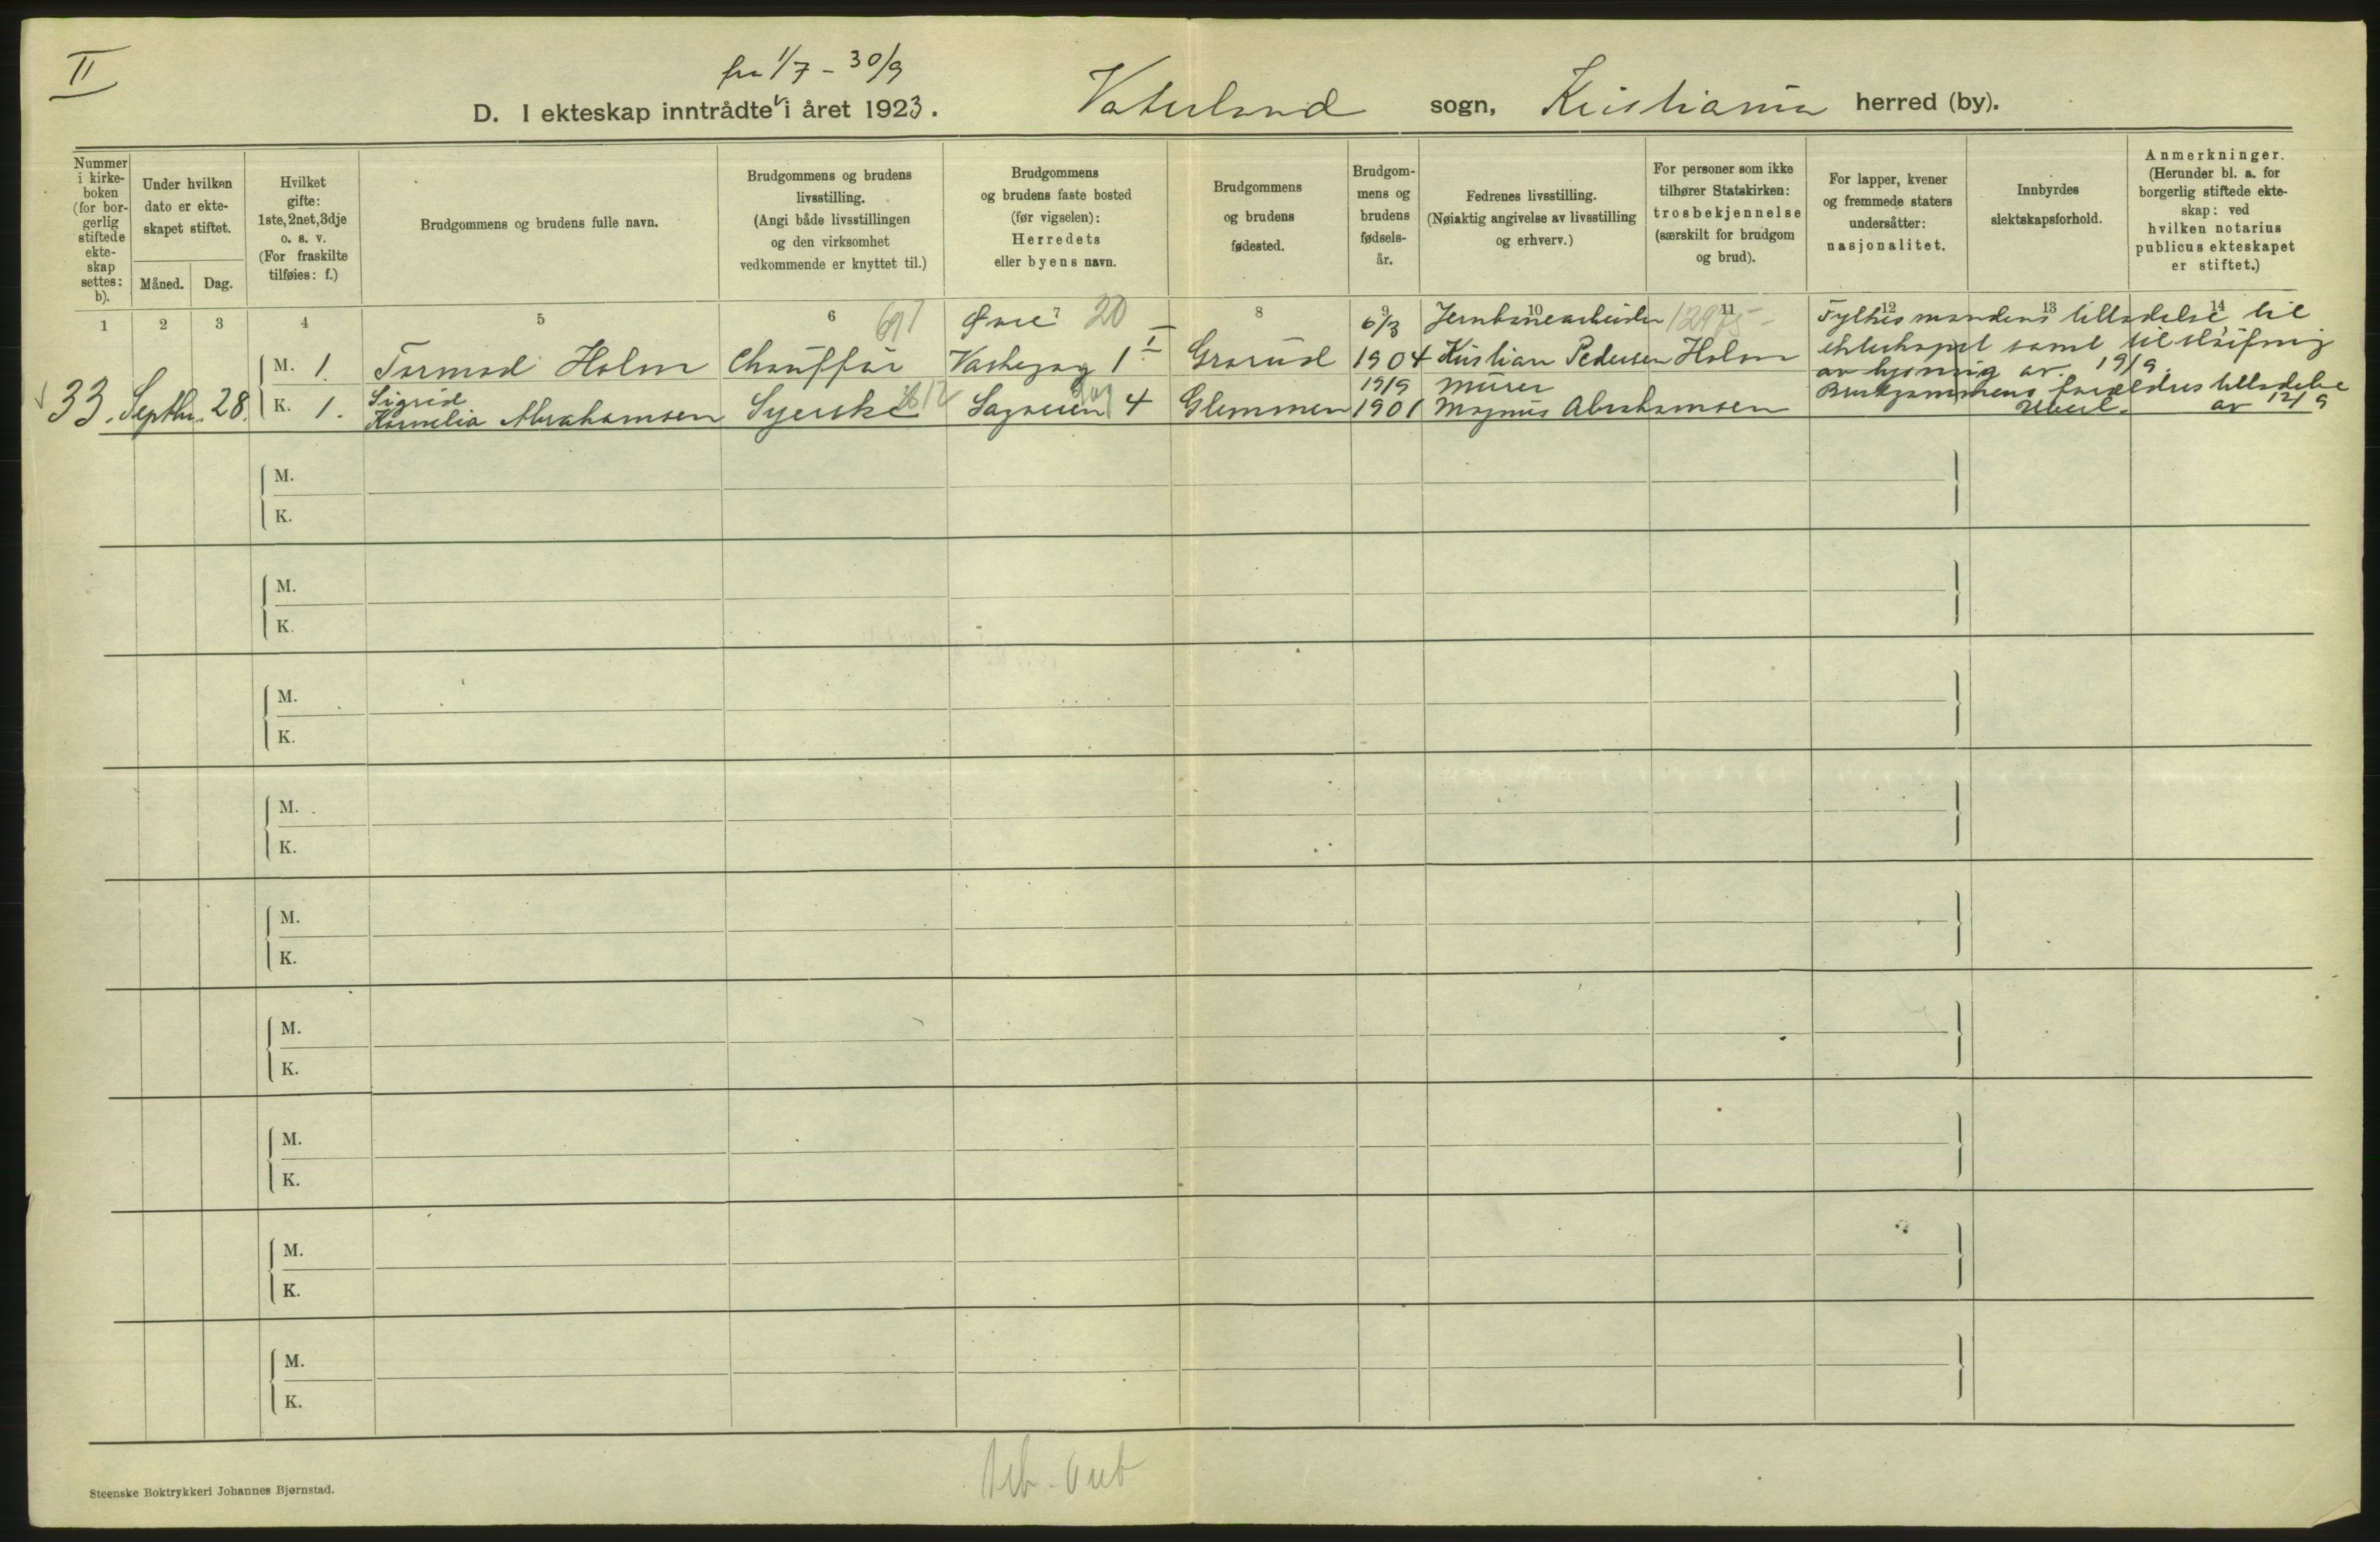 II
fra 1/7 - 30/9
D. I ekteskap inntrådte i året 1923.
Vaterland sogn, Kristiania herred (by).
Nummer i kirkeboken (for borgerlig stiftede ekteskap settes: b).
Under hvilken dato er ekteskapet stiftet.
Måned. Dag.
Hvilket gifte: 1ste, 2net, 3dje o. s. v. (For fraskilte tilføies: f.)
Brudgommens og brudens fulle navn.
Brudgommens og brudens livsstilling. (Angi både livsstillingen og den virksomhet vedkommende er knyttet til.)
Brudgommens og brudens faste bosted (før vigselen): Herredets eller byens navn.
Brudgommens og brudens fødested.
Brudgommens og brudens fødselsår.
Fedrenes livsstilling. (Nøiaktig angivelse av livsstilling og erhverv.)
For personer som ikke tilhører Statskirken: trosbekjennelse (særskilt for brudgom og brud).
For lapper, kvener og fremmede staters undersåtter: nasjonalitet.
Innbyrdes slektskapsforhold.
Anmerkninger. (Herunder bl. a. for borgerlig stiftede ekteskap: ved hvilken notarius publicus ekteskapet er stiftet.)
1 2 3 4 5 6 7 8 9 10 11 12 13 14
691 Øvre 20 6/3 Jernbanearbeider Fylkesmandens tilladelse til
M. 1. Tormod Holm Chauffør Vaskegang 1 I Grorud 1904 Kristian Pedersen Holm ekteskapet samt til
av lysning av 19/9.
33. Septbr. 28.
Sigrid 19/9 Murer Brudgommens forældres tilladelse
K. 1. Kornelia Abrahamsen Syerske Sagveien 4 Glemmen 1901 Magnus Abrahamsen Ubesl. av 12/9
M.
K.
M.
K.
M.
K.
M.
K.
M.
K.
M.
K.
M.
K.
M.
K.
M.
K.
Steenske Boktrykkeri Johannes Bjørnstad.